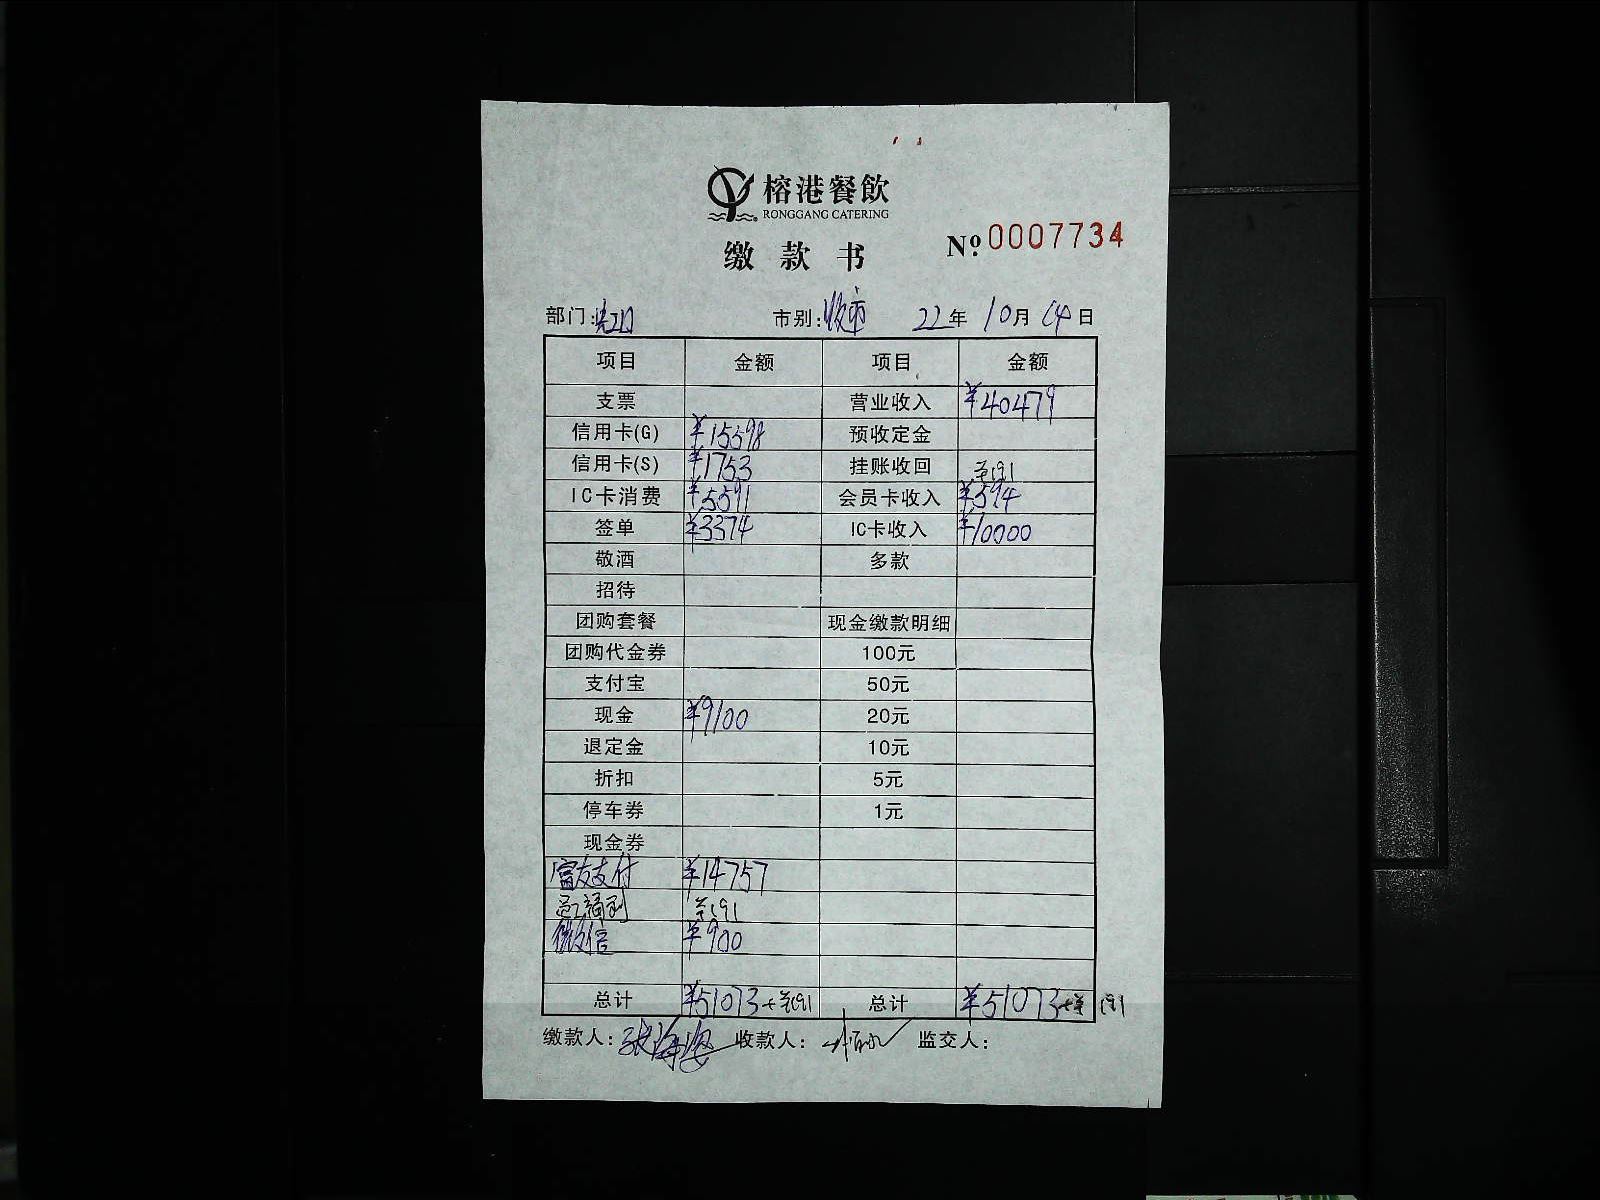 榕港餐飲
RONGGANG CATERING
缴款书 Nº 0007734
部门: 市别:收市 22年10月14日
项目 金额 项目 金额
支票 营业收入 ¥40479
信用卡(G) ¥15598 预收定金
信用卡(S) ¥1753 挂账收回 ¥191
IC卡消费 ¥5591 会员卡收入 ¥594
签单 ¥3374 IC卡收入 ¥10000
敬酒 多款
招待
团购套餐 现金缴款明细
团购代金券 100元
支付宝 50元
现金 ¥9100 20元
退定金 10元
折扣 5元
停车券 1元
现金券
富友支付 ¥14757
¥191
微信 ¥900
总计 ¥51073+¥191 总计 ¥51073+¥191
缴款人: 收款人: 监交人: